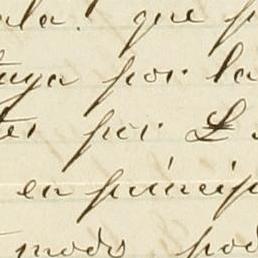 ala. que p
tuya por la
tes por L.
en princip
modo pod